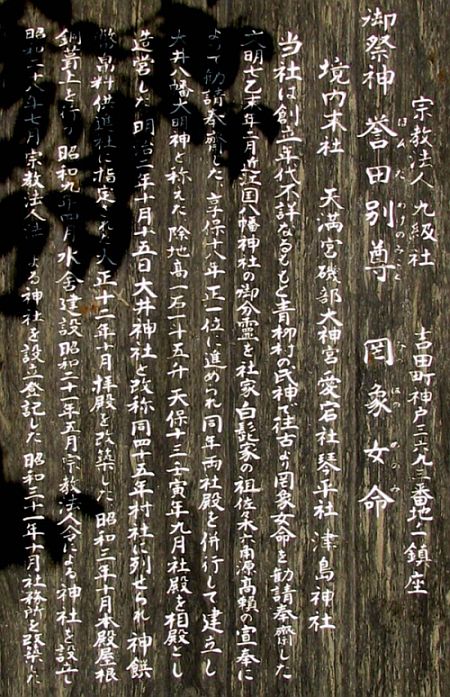 宗教法人 九級社 吉田町神戸三六九三番地ノ一鎮座
御祭神 誉田別尊 罔象女命
ほんだ わけのみこと みずはのめのみこと
境内末社 天満宮 磯部大神宮 愛宕社 琴平社 津島神社
当社は創立年代不詳なるももと青柳村の氏神で往古より罔象女命を勧請奉齋した
文明七乙未年二月近江国八幡神社の御分霊を社家白髭家の祖佐々木六南源高頼の宣奉に
よって勧請奉齋した 享保十八年正一位に進められ同年両社殿を併行して建立し
大井八幡大明神と称えた 除地高一石一斗五升 天保十三壬寅年九月社殿を相殿とし
造営した 明治二年十月十五日大井神社と改称 同四十五年村社に列せられ神饌
幣帛料供進社に指定された 大正十二年十月拝殿を改築した 昭和三年十月本殿屋根
銅葺上を行う 昭和九年四月水舎建設 昭和二十一年五月宗教法人令による神社を設立
昭和二十八年七月宗教法人法による神社を設立登記した 昭和三十一年十月社務所を改築した